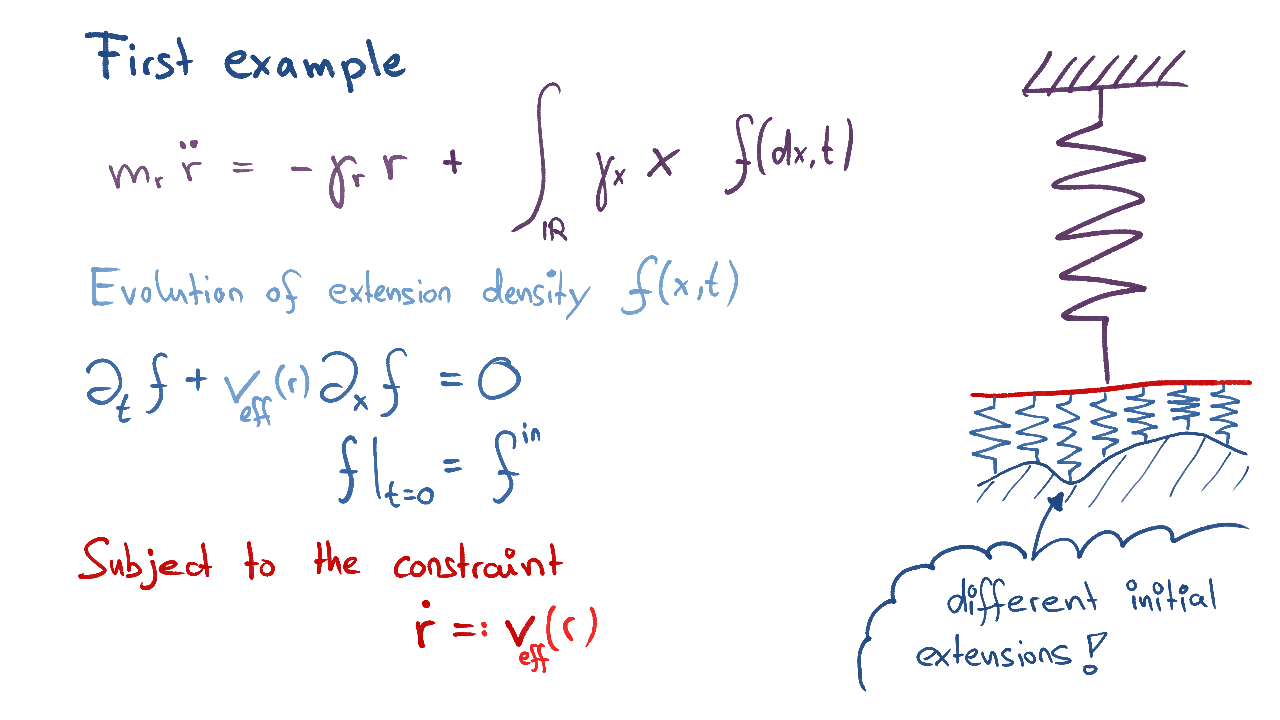 First example
mᵣ r̈ = - γᵣ r + ∫_ℝ γₓ x f(dx,t)
Evolution of extension density f(x,t)
∂ₜ f + v_eff(r) ∂ₓ f = 0
f|ₜ₌₀ = fⁱⁿ
Subject to the constraint
ṙ =: v_eff(r)
different initial
extensions!